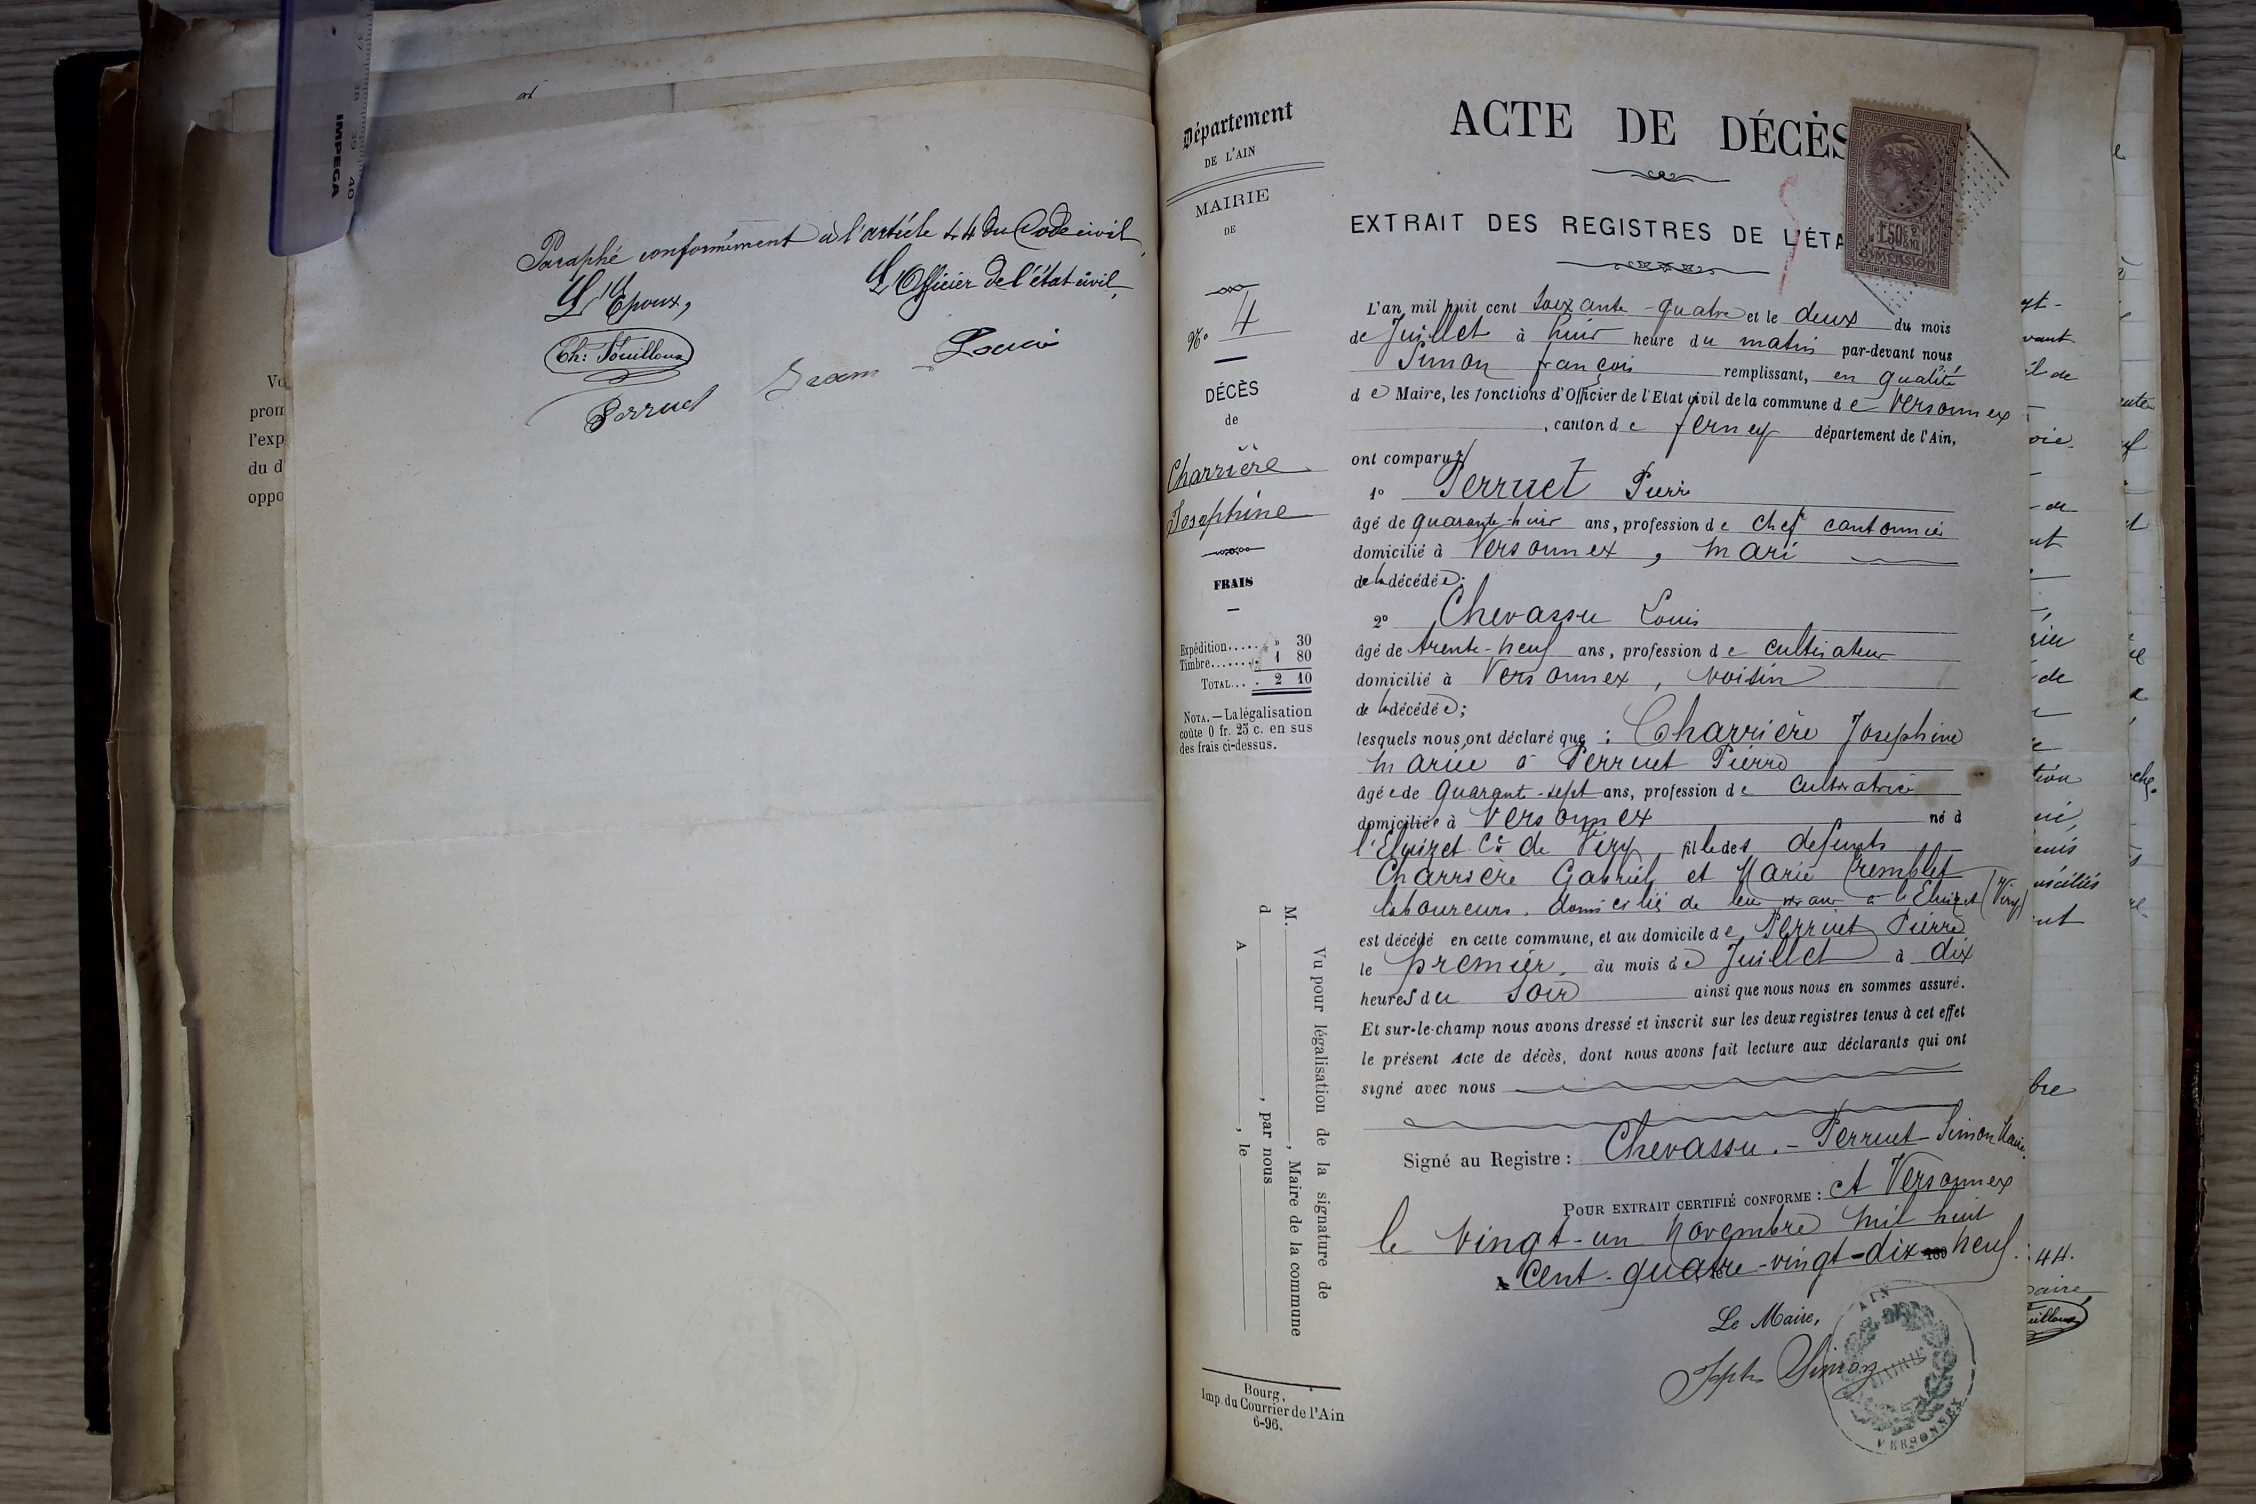 IMPEGA
39 40
Vu
pron
l'exp
du d
oppo
Paraphé conformément à l'article 44 du Code civil,
L'Epoux,
L'Officier de l'état civil,
Ch: Fouilloux
Perruet
Département
DE L'AIN
MAIRIE
DE
No 4
DÉCÈS
de
Charrière
Josephine
FRAIS
Expédition...... » 30
Timbre........ 1 80
TOTAL.... 2 10
NOTA. — La légalisation
coûte 0 fr. 25 c. en sus
des frais ci-dessus.
Vu pour légalisation de la signature de
M. , Maire de la commune
d , par nous
A , le
Bourg,
Imp. du Courrier de l'Ain
6-96.
ACTE DE DÉCÈS
EXTRAIT DES REGISTRES DE L'ÉTA
1F50
DIMENSION
L'an mil huit cent soixante-quatre et le deux du mois
de Juillet à huit heure du matin par-devant nous
Simon françois remplissant, en qualité
de Maire, les fonctions d'Officier de l'Etat civil de la commune de Versonnex
, canton de ferney département de l'Ain,
ont comparu
1º Perruet Pierre
âgé de quarante-huit ans, profession de chef cantonnier
domicilié à Versonnex, mari
de la décédée;
2º Chevassu Louis
âgé de trente-neuf ans, profession de cultivateur
domicilié à Versonnex, voisin
de la décédée;
lesquels nous ont déclaré que : Charrière Josephine
mariée à Perruet Pierre
âgée de quarant-sept ans, profession de cultivatrice
domiciliée à Versonnex né à
l'Eluizet Cne de Viry fille des defunts
Charrière Gabriel et Marie Tremblet
laboureurs, domiciliés de leur vivant à l'Eluizet (Viry)
est décédé en cette commune, et au domicile de Perruet Pierre
le premier du mois de Juillet à dix
heures du soir ainsi que nous nous en sommes assuré.
Et sur-le-champ nous avons dressé et inscrit sur les deux registres tenus à cet effet
le présent Acte de décès, dont nous avons fait lecture aux déclarants qui ont
signé avec nous
Signé au Registre : Chevassu. - Perruet Simon Maire.
POUR EXTRAIT CERTIFIÉ CONFORME : A Versonnex
le vingt-un novembre mil huit
A cent-quatre-vingt-dix 189 neuf.
Le Maire,
Jph Simon
AIN
MAIRIE
VERSONNEX
44.